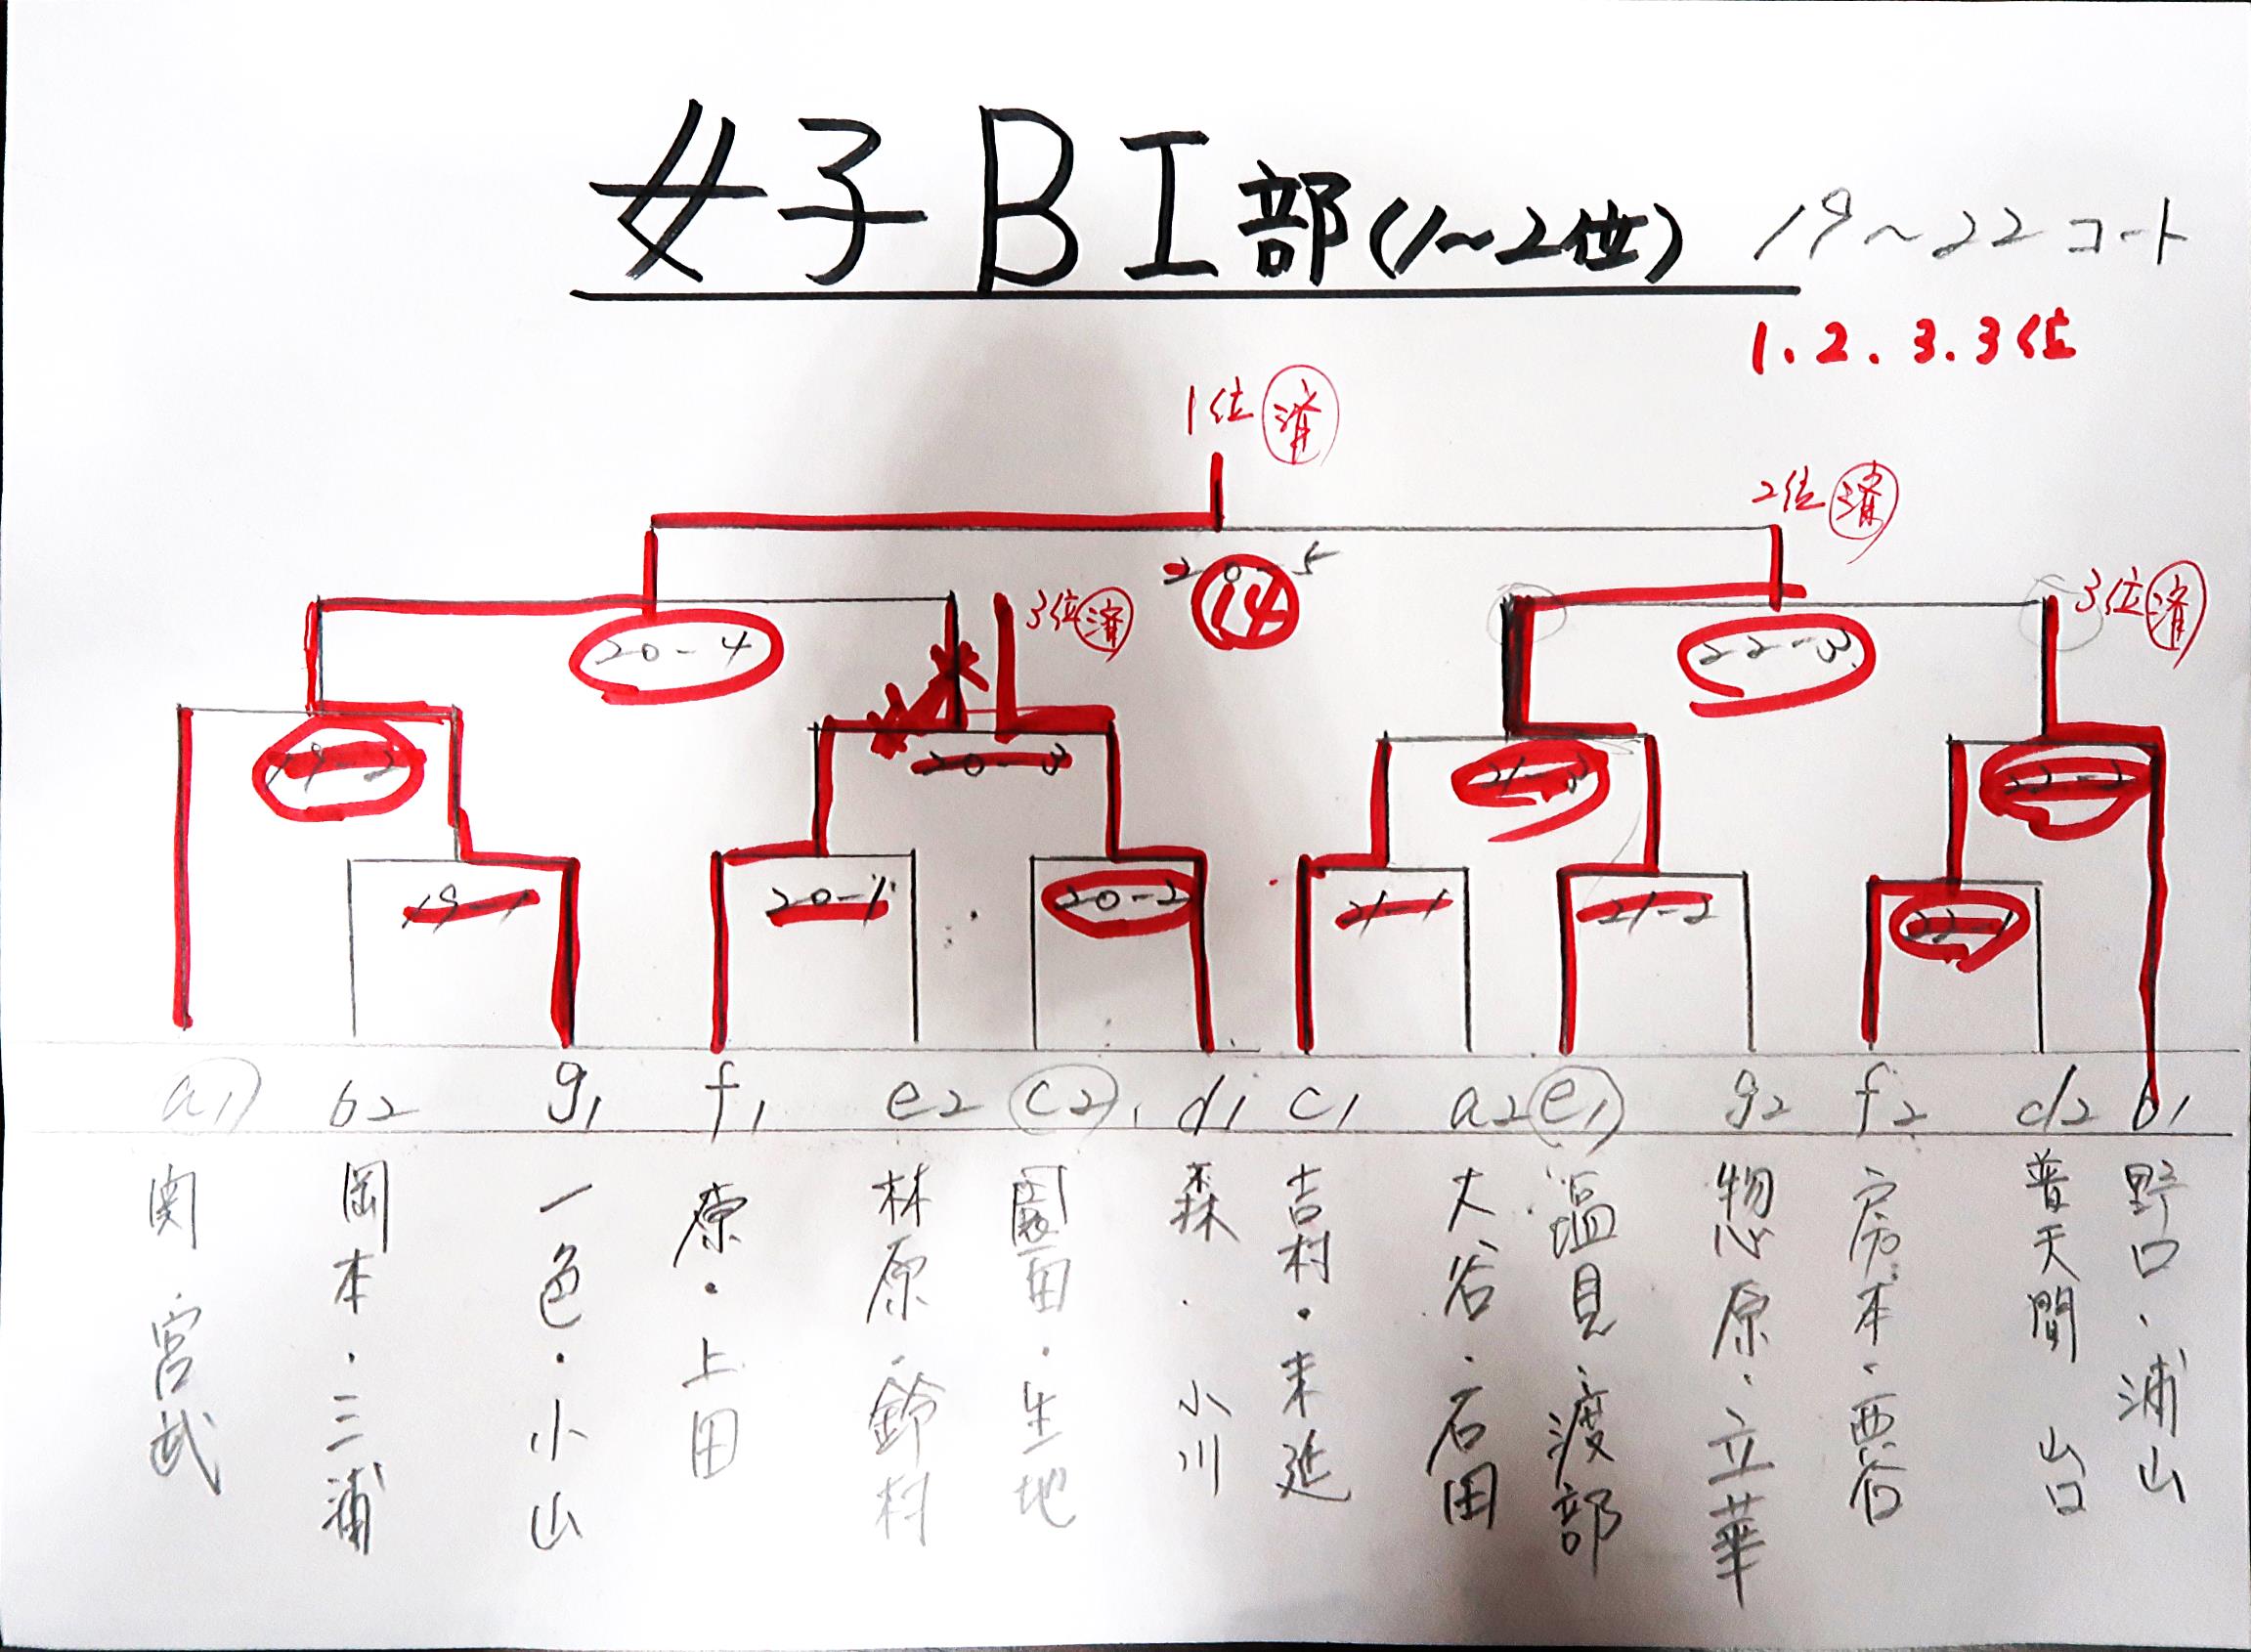 女子BI部(1~2位) 19~22コート
1.2.3.3位
1位 済
2位 済
20-5
14
3位 済
3位 済
20-4
22-3
19-2
20-3
21-3
22-2
19-1
20-1
20-2
21-1
21-2
22-1
a1 b2 g1 f1 e2 c2 d1 c1 a2 e1 g2 f2 d2 b1
関・宮武
岡本・三浦
一色・小山
原・上田
林原・鈴村
園田・生地
森・小川
吉村・末延
大谷・石田
塩見・渡部
惣原・立華
房本・西谷
普天間 山口
野口・浦山